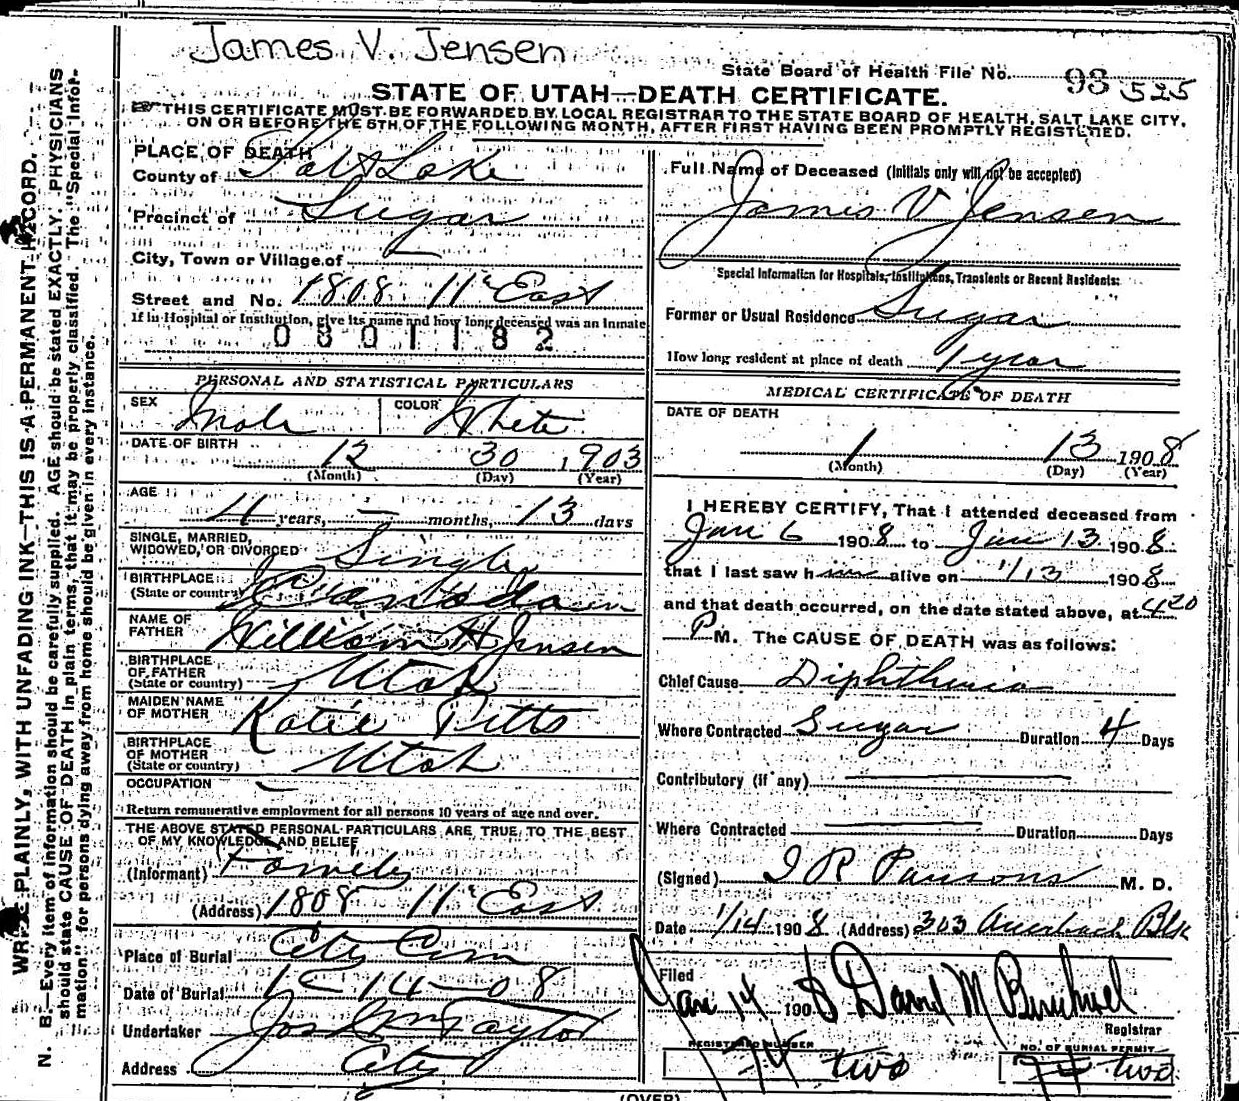 James V. Jensen
State Board of Health File No. 93 525
STATE OF UTAH—DEATH CERTIFICATE.
THIS CERTIFICATE MUST BE FORWARDED BY LOCAL REGISTRAR TO THE STATE BOARD OF HEALTH, SALT LAKE CITY,
ON OR BEFORE THE 5TH OF THE FOLLOWING MONTH, AFTER FIRST HAVING BEEN PROMPTLY REGISTERED.
WRITE PLAINLY, WITH UNFADING INK—THIS IS A PERMANENT RECORD.
N. B.—Every item of information should be carefully supplied. AGE should be stated EXACTLY. PHYSICIANS
should state CAUSE OF DEATH in plain terms, that it may be properly classified. The "Special Infor-
mation" for persons dying away from home should be given in every instance.
PLACE OF DEATH
County of Salt Lake
Precinct of Sugar
City, Town or Village of
Street and No. 1808 11" East
If in Hospital or Institution, give its name and how long deceased was an Inmate
0801182
PERSONAL AND STATISTICAL PARTICULARS
SEX Male COLOR White
DATE OF BIRTH 12 30 1903
(Month) (Day) (Year)
AGE 4 years, — months, 13 days
SINGLE, MARRIED,
WIDOWED, OR DIVORCED Single
BIRTHPLACE
(State or country) Canada
NAME OF
FATHER William H Jensen
BIRTHPLACE
OF FATHER
(State or country) Utah
MAIDEN NAME
OF MOTHER Katie Pitts
BIRTHPLACE
OF MOTHER
(State or country) Utah
OCCUPATION —
Return remunerative employment for all persons 10 years of age and over.
THE ABOVE STATED PERSONAL PARTICULARS ARE TRUE TO THE BEST
OF MY KNOWLEDGE AND BELIEF
(Informant) Family
(Address) 1808 11" East
Place of Burial City Cem
Date of Burial 1-14-08
Undertaker Jos Wm Taylor
Address City
Full Name of Deceased (Initials only will not be accepted)
James V Jensen
Special Information for Hospitals, Institutions, Transients or Recent Residents:
Former or Usual Residence Sugar
How long resident at place of death 1 year
MEDICAL CERTIFICATE OF DEATH
DATE OF DEATH
1 13 1908
(Month) (Day) (Year)
I HEREBY CERTIFY, That I attended deceased from
Jan 6 1908 to Jan 13 1908
that I last saw him alive on 1/13 1908
and that death occurred, on the date stated above, at 4 20
P M. The CAUSE OF DEATH was as follows:
Chief Cause Diphtheria
Where Contracted Sugar Duration 4 Days
Contributory (if any)
Where Contracted Duration Days
(Signed) Parsons M. D.
Date 1/14 1908 (Address) 303 Auerbach Blk
Filed
Jan 14 1908 David M
Registrar
REGISTERED NUMBER NO. OF BURIAL PERMIT
74 two 74 two
(OVER)